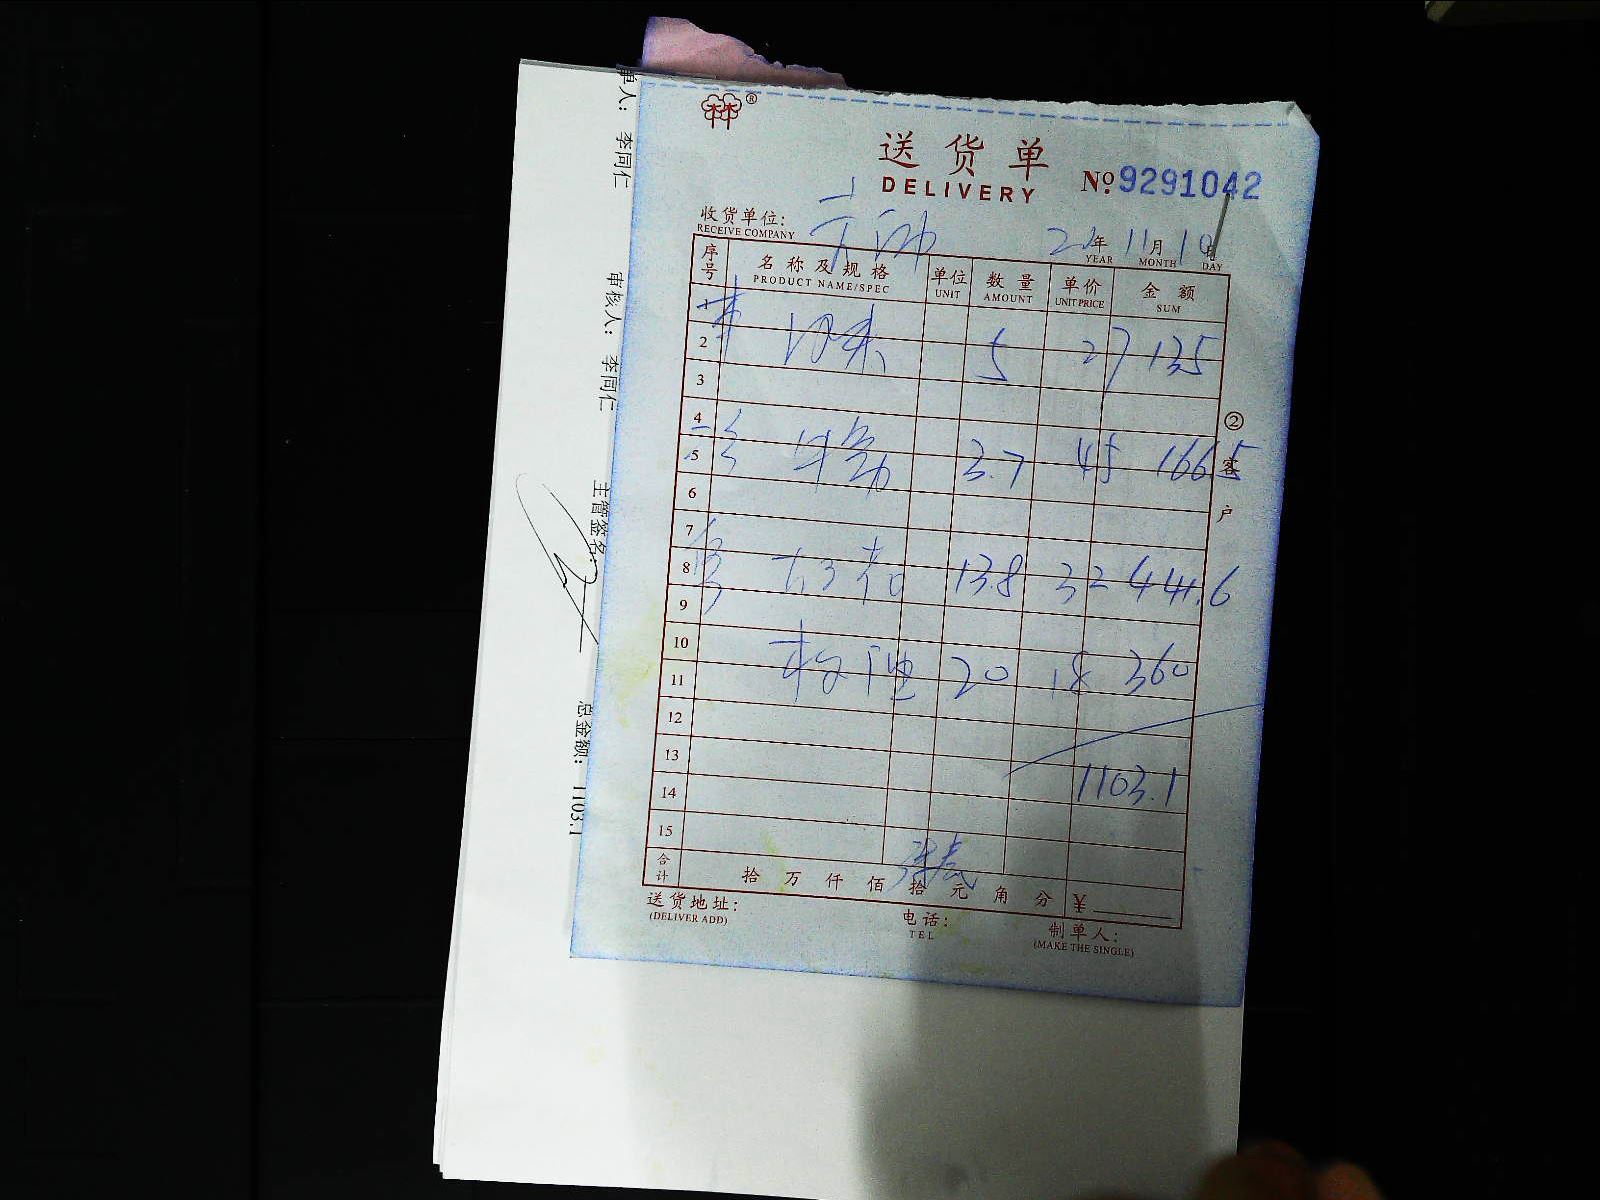 ®
送货单
DELIVERY
№ 9291042
收货单位:
RECEIVE COMPANY
年 11 月 10 日
YEAR MONTH DAY
序号 名称及规格 单位 数量 单价 金额
PRODUCT NAME/SPEC UNIT AMOUNT UNIT PRICE SUM
1
2 5 27 135
3
4
5 3.7 45 166.5
6
7
8 13.8 32 441.6
9
10
11 20 18 360
12
13
14 1103.1
15
合计 拾 万 仟 佰 拾 元 角 分 ¥
送货地址:
(DELIVER ADD)
电话:
TEL
制单人:
(MAKE THE SINGLE)
②客户
单人: 李同仁 审核人: 李同仁 主管签名: 总金额: 1103.1